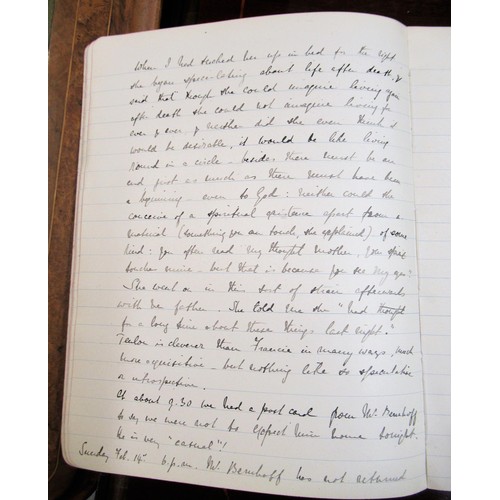 When I had tucked her up in bed for the night
she began speculating about life after death, &
said that though she could imagine living again
after death she could not imagine living for
ever & ever & neither did she even think it
would be desirable, it would be like living
round in a circle - besides there must be an
end just as much as there must have been
a beginning - even to God: neither could she
conceive of a spiritual existence apart from a
material (something you can touch, she explained) of some
kind: you often read my thought mother, your spirit
touches mine - but that is because you see my eyes?
She went on in this sort of strain afterwards
with her father. She told me she "had thought
for a long time about these things last night."
is cleverer than Francie in many ways, much
more acquisitive - but nothing like so speculative
or introspective.
At about 9.30 we had a post card from Mr.
to say we were not to expect him home tonight.
He is very "casual"!
Sunday Feb. 14th 6 p.m. Mr. has not returned